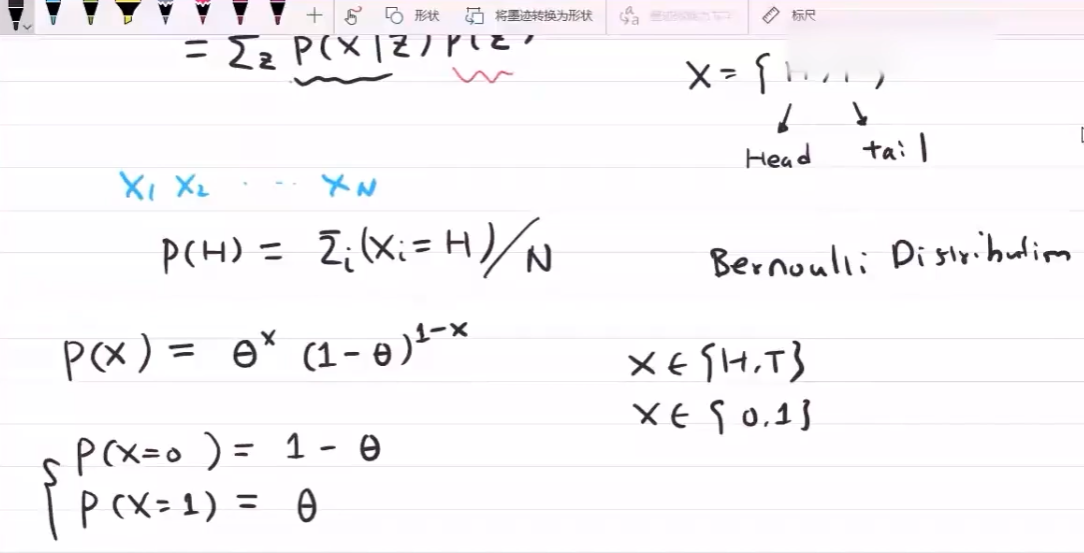 形状 将墨迹转换为形状 标尺
= Σz P(X|z) P(z)
X = {H, T}
Head tail
X1 X2 · ·· XN
P(H) = Σi(Xi = H)/N
Bernoulli Distribution
P(X) = θ^x (1-θ)^1-x
X ∈ {H,T}
X ∈ {0,1}
P(X=0) = 1 - θ
P(X=1) = θ